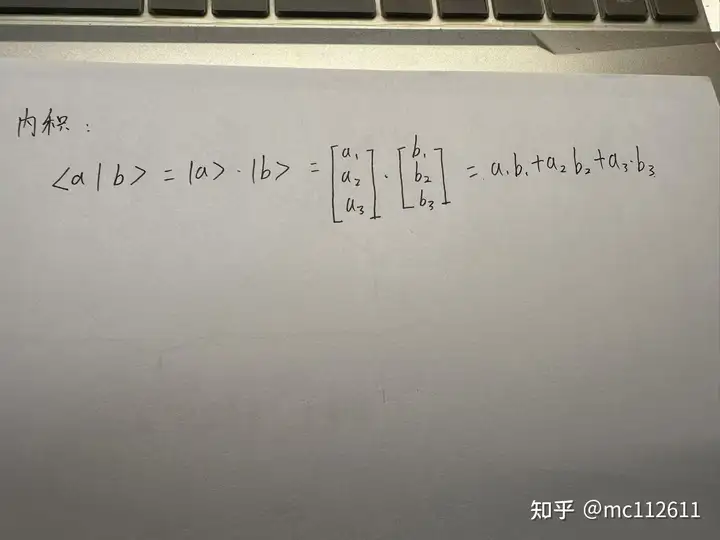 内积：
<a|b> = |a>·|b> = [a₁ a₂ a₃]·[b₁ b₂ b₃] = a₁b₁+a₂b₂+a₃·b₃
知乎 @mc112611